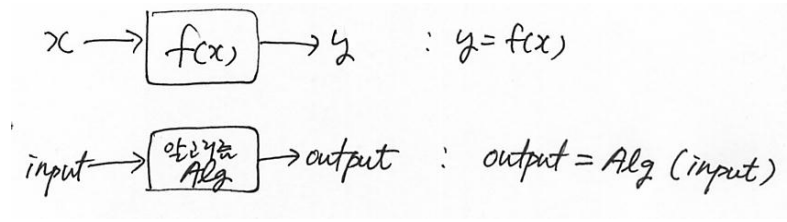 x → f(x) → y : y = f(x)
input → 알고리즘 Alg → output : output = Alg (input)